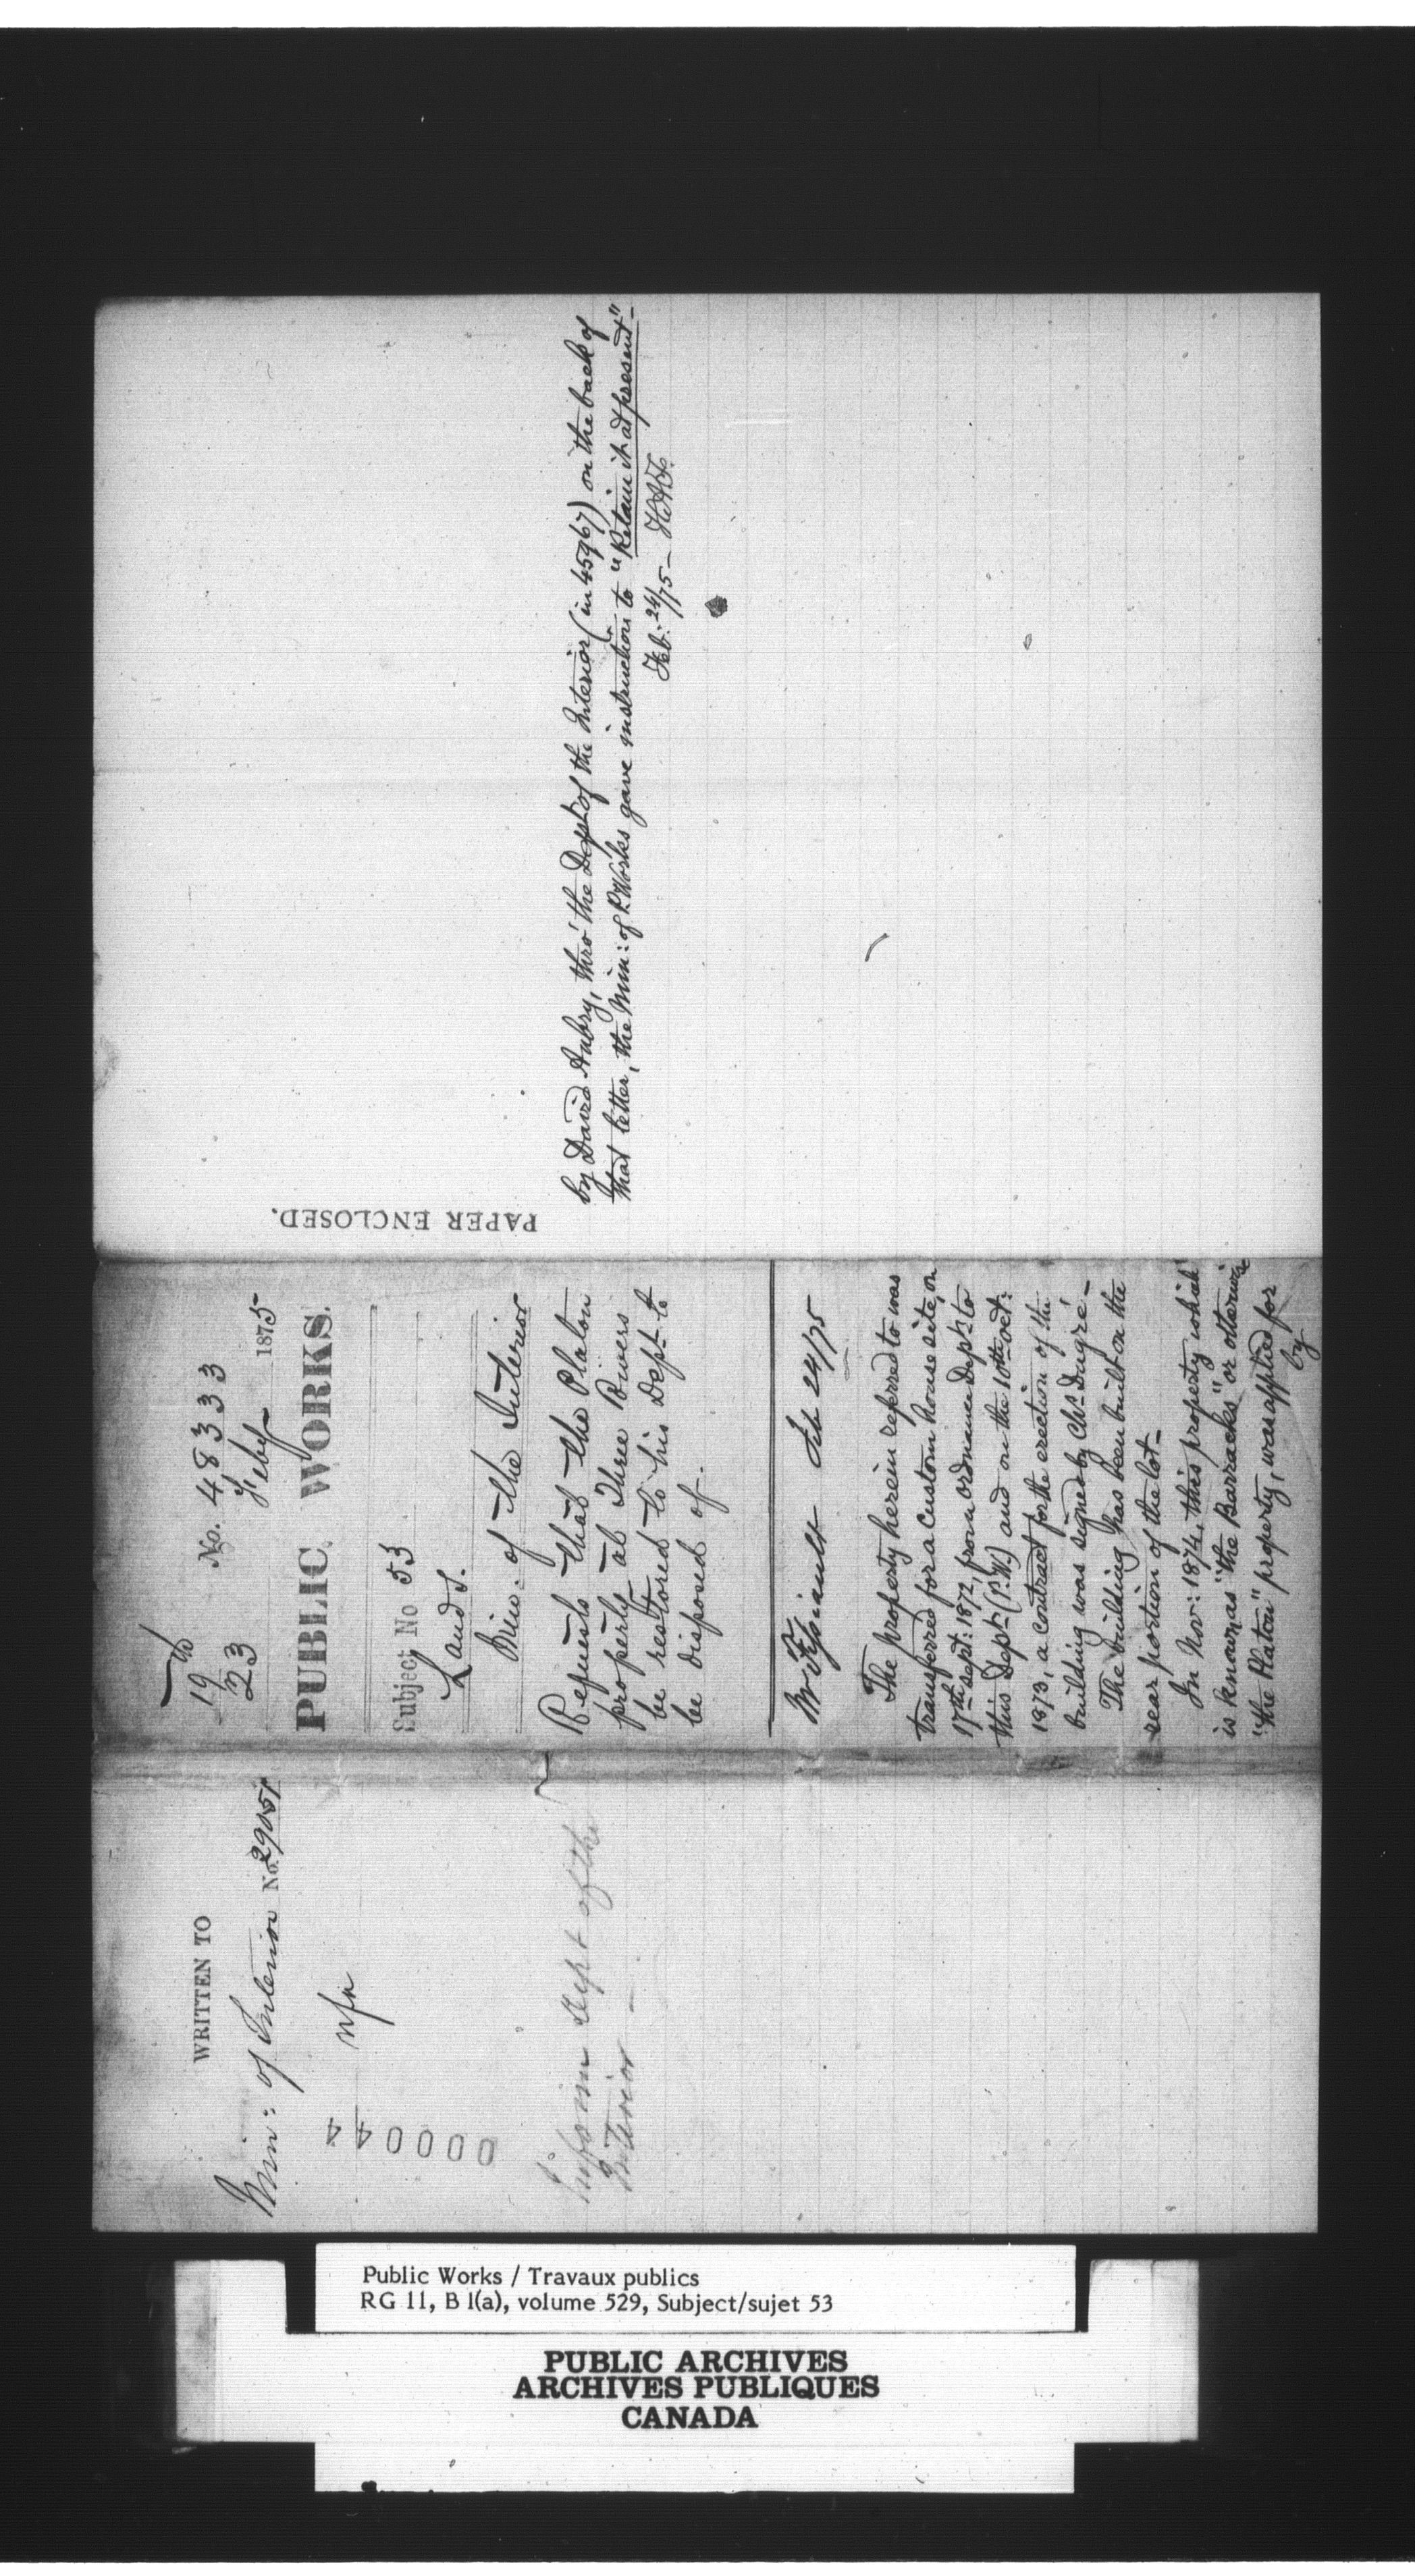 WRITTEN TO
Min: of Interior No. 29051
nfa
000044
Inform Dept of the
Interior —
19
23
No. 48333
Feby 1875
PUBLIC WORKS.
Subject No 53
Lands.
Min. of the Interior
Requests that the Platon
property at Three Rivers
be restored to his Dept to
be disposed of.
Feb 24/75
The property herein referred to was
transferred for a custom house site, on
17th Sept: 1872, from Ordnance Dept to
this Dept (P.W.) and on the 10th Oct:
1873, a contract for the erection of the
building was signed by Chs Dugré —
The building has been built on the
rear portion of the lot —
In Nov: 1874, this property which
is known as "the Barracks" or otherwise
"the Platon" property, was applied for
by
PAPER ENCLOSED.
by David Aubry, thro' the Dept of the Interior (in 45967) on the back of
that letter, the Min: of P. Works gave instructions to "Retain it at present" —
Feb: 24/75 —
Public Works / Travaux publics
RG 11, B 1(a), volume 529, Subject/sujet 53
PUBLIC ARCHIVES
ARCHIVES PUBLIQUES
CANADA